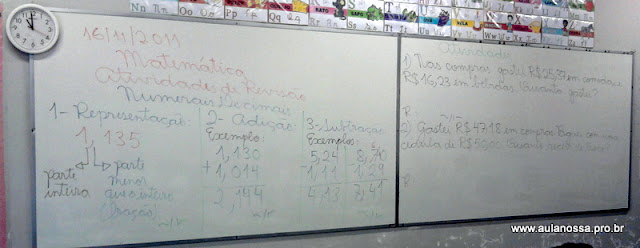 Nn Oo Pp Qq Rr Ss Tt Uu Vv Ww Xx Yy Zz
RATO SAPO TATU UVA VACA
16/11/2011
Matemática
Atividades de Revisão
Numerais Decimais
1- Representação:
1,135
parte inteira
parte menor que o inteiro (fração)
2- Adição:
Exemplo:
1,130
+ 1,014
2,144
3- Subtração
Exemplos:
5,24
- 1,11
4,13
8,70
1,29
7,41
Atividade
1) Nas compras gastei R$ em comidas e
R$ 16,23 em bebidas. Quanto gastei?
R:
2) Gastei R$ 47,18 em compras. Paguei com uma
cédula de R$ 50,00. Quanto recebi de troco?
R:
www.aulanossa.pro.br